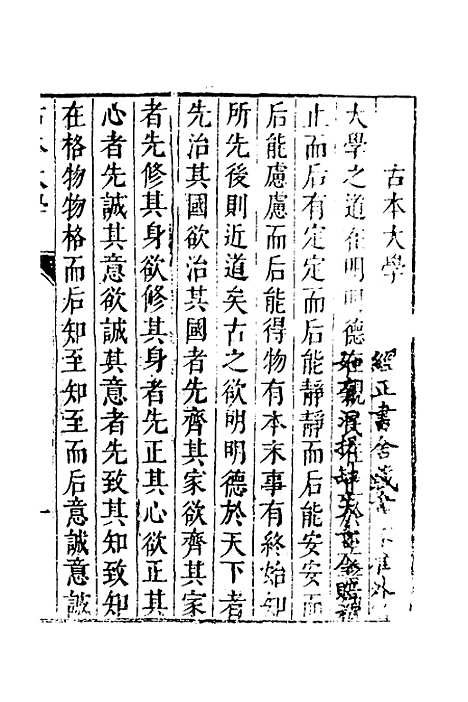 古本大學
經正書舍藏 准外
大學之道在明明德
止而后有定定而后能靜靜而后能安安而
后能慮慮而后能得物有本末事有終始知
所先後則近道矣古之欲明明德於天下者
先治其國欲治其國者先齊其家欲齊其家
者先修其身欲修其身者先正其心欲正其
心者先誠其意欲誠其意者先致其知致知
在格物物格而后知至知至而后意誠意誠
古本大學
一